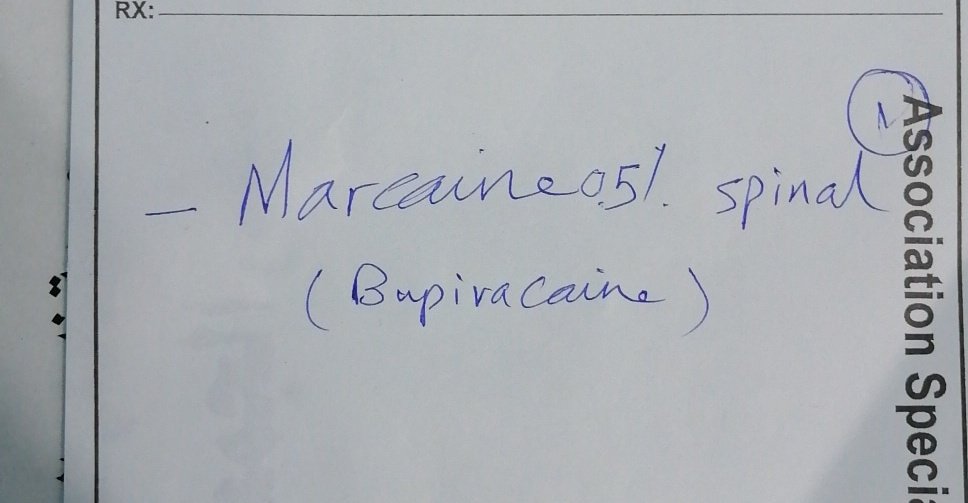 RX:
- Marcaine 0.5%. spinal
(Bupivacaine)
Association Speci